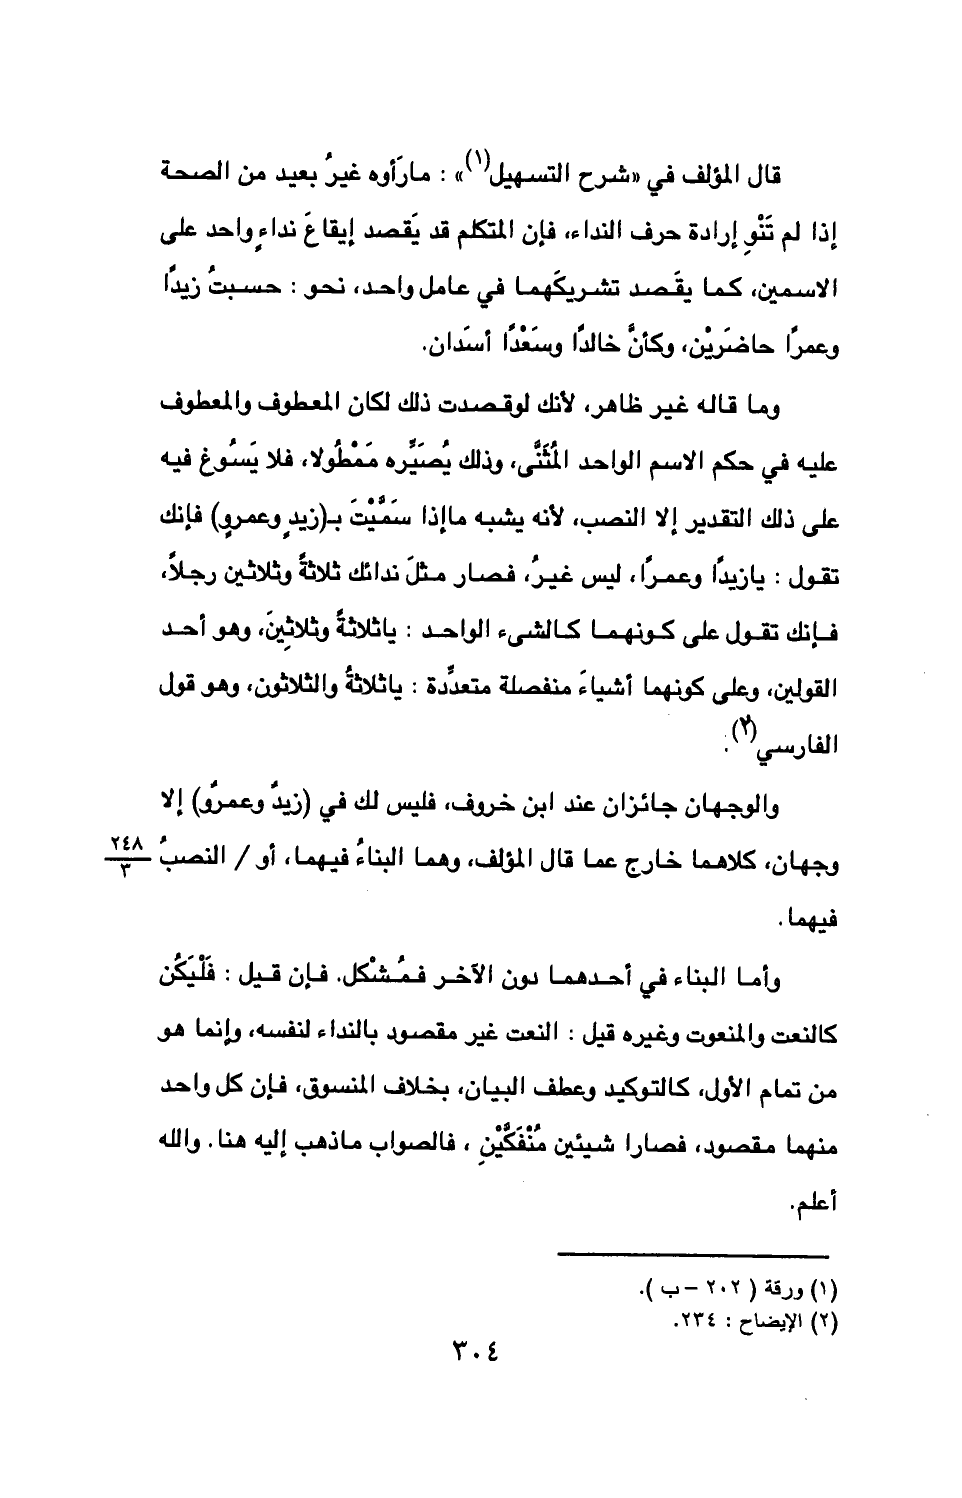 قال المؤلف في «شرح التسهيل(١)» : مارَأوه غيرُ بعيد من الصحة
إذا لم تَنْوِ إرادة حرف النداء، فإن المتكلم قد يَقصد إيقاعَ نداءٍ واحد على
الاسمين، كما يقَصد تشريكَهما في عامل واحد، نحو : حسبتُ زيدًا
وعمرًا حاضرَيْن، وكأنَّ خالدًا وسَعْدًا أسَدان.
وما قاله غير ظاهر، لأنك لوقصدت ذلك لكان المعطوف والمعطوف
عليه في حكم الاسم الواحد المُثَنَّى، وذلك يُصَيِّره مَمْطُولا، فلا يَسُوغ فيه
على ذلك التقدير إلا النصب، لأنه يشبه ماإذا سَمَّيْتَ بـ(زيدٍ وعمروٍ) فإنك
تقول : يازيدًا وعمرًا، ليس غيرُ، فصار مثلَ ندائك ثلاثةً وثلاثين رجلاً،
فإنك تقول على كونهما كالشىء الواحد : ياثلاثةً وثلاثِينَ، وهو أحد
القولين، وعلى كونهما أشياءَ منفصلة متعدِّدة : ياثلاثةُ والثلاثون، وهو قول
الفارسي(٢).
والوجهان جائزان عند ابن خروف، فليس لك في (زيدٌ وعمروٌ) إلا
وجهان، كلاهما خارج عما قال المؤلف، وهما البناءُ فيهما، أو / النصبُ ٢٤٨/٣
فيهما.
وأما البناء في أحدهما دون الآخر فمُشْكل. فإن قيل : فَلْيَكُن
كالنعت والمنعوت وغيره قيل : النعت غير مقصود بالنداء لنفسه، وإنما هو
من تمام الأول، كالتوكيد وعطف البيان، بخلاف المنسوق، فإن كل واحد
منهما مقصود، فصارا شيئين مُنْفَكَّيْنِ ، فالصواب ماذهب إليه هنا. والله
أعلم.
(١) ورقة ( ٢٠٢ – ب ).
(٢) الإيضاح : ٢٣٤.
٣٠٤